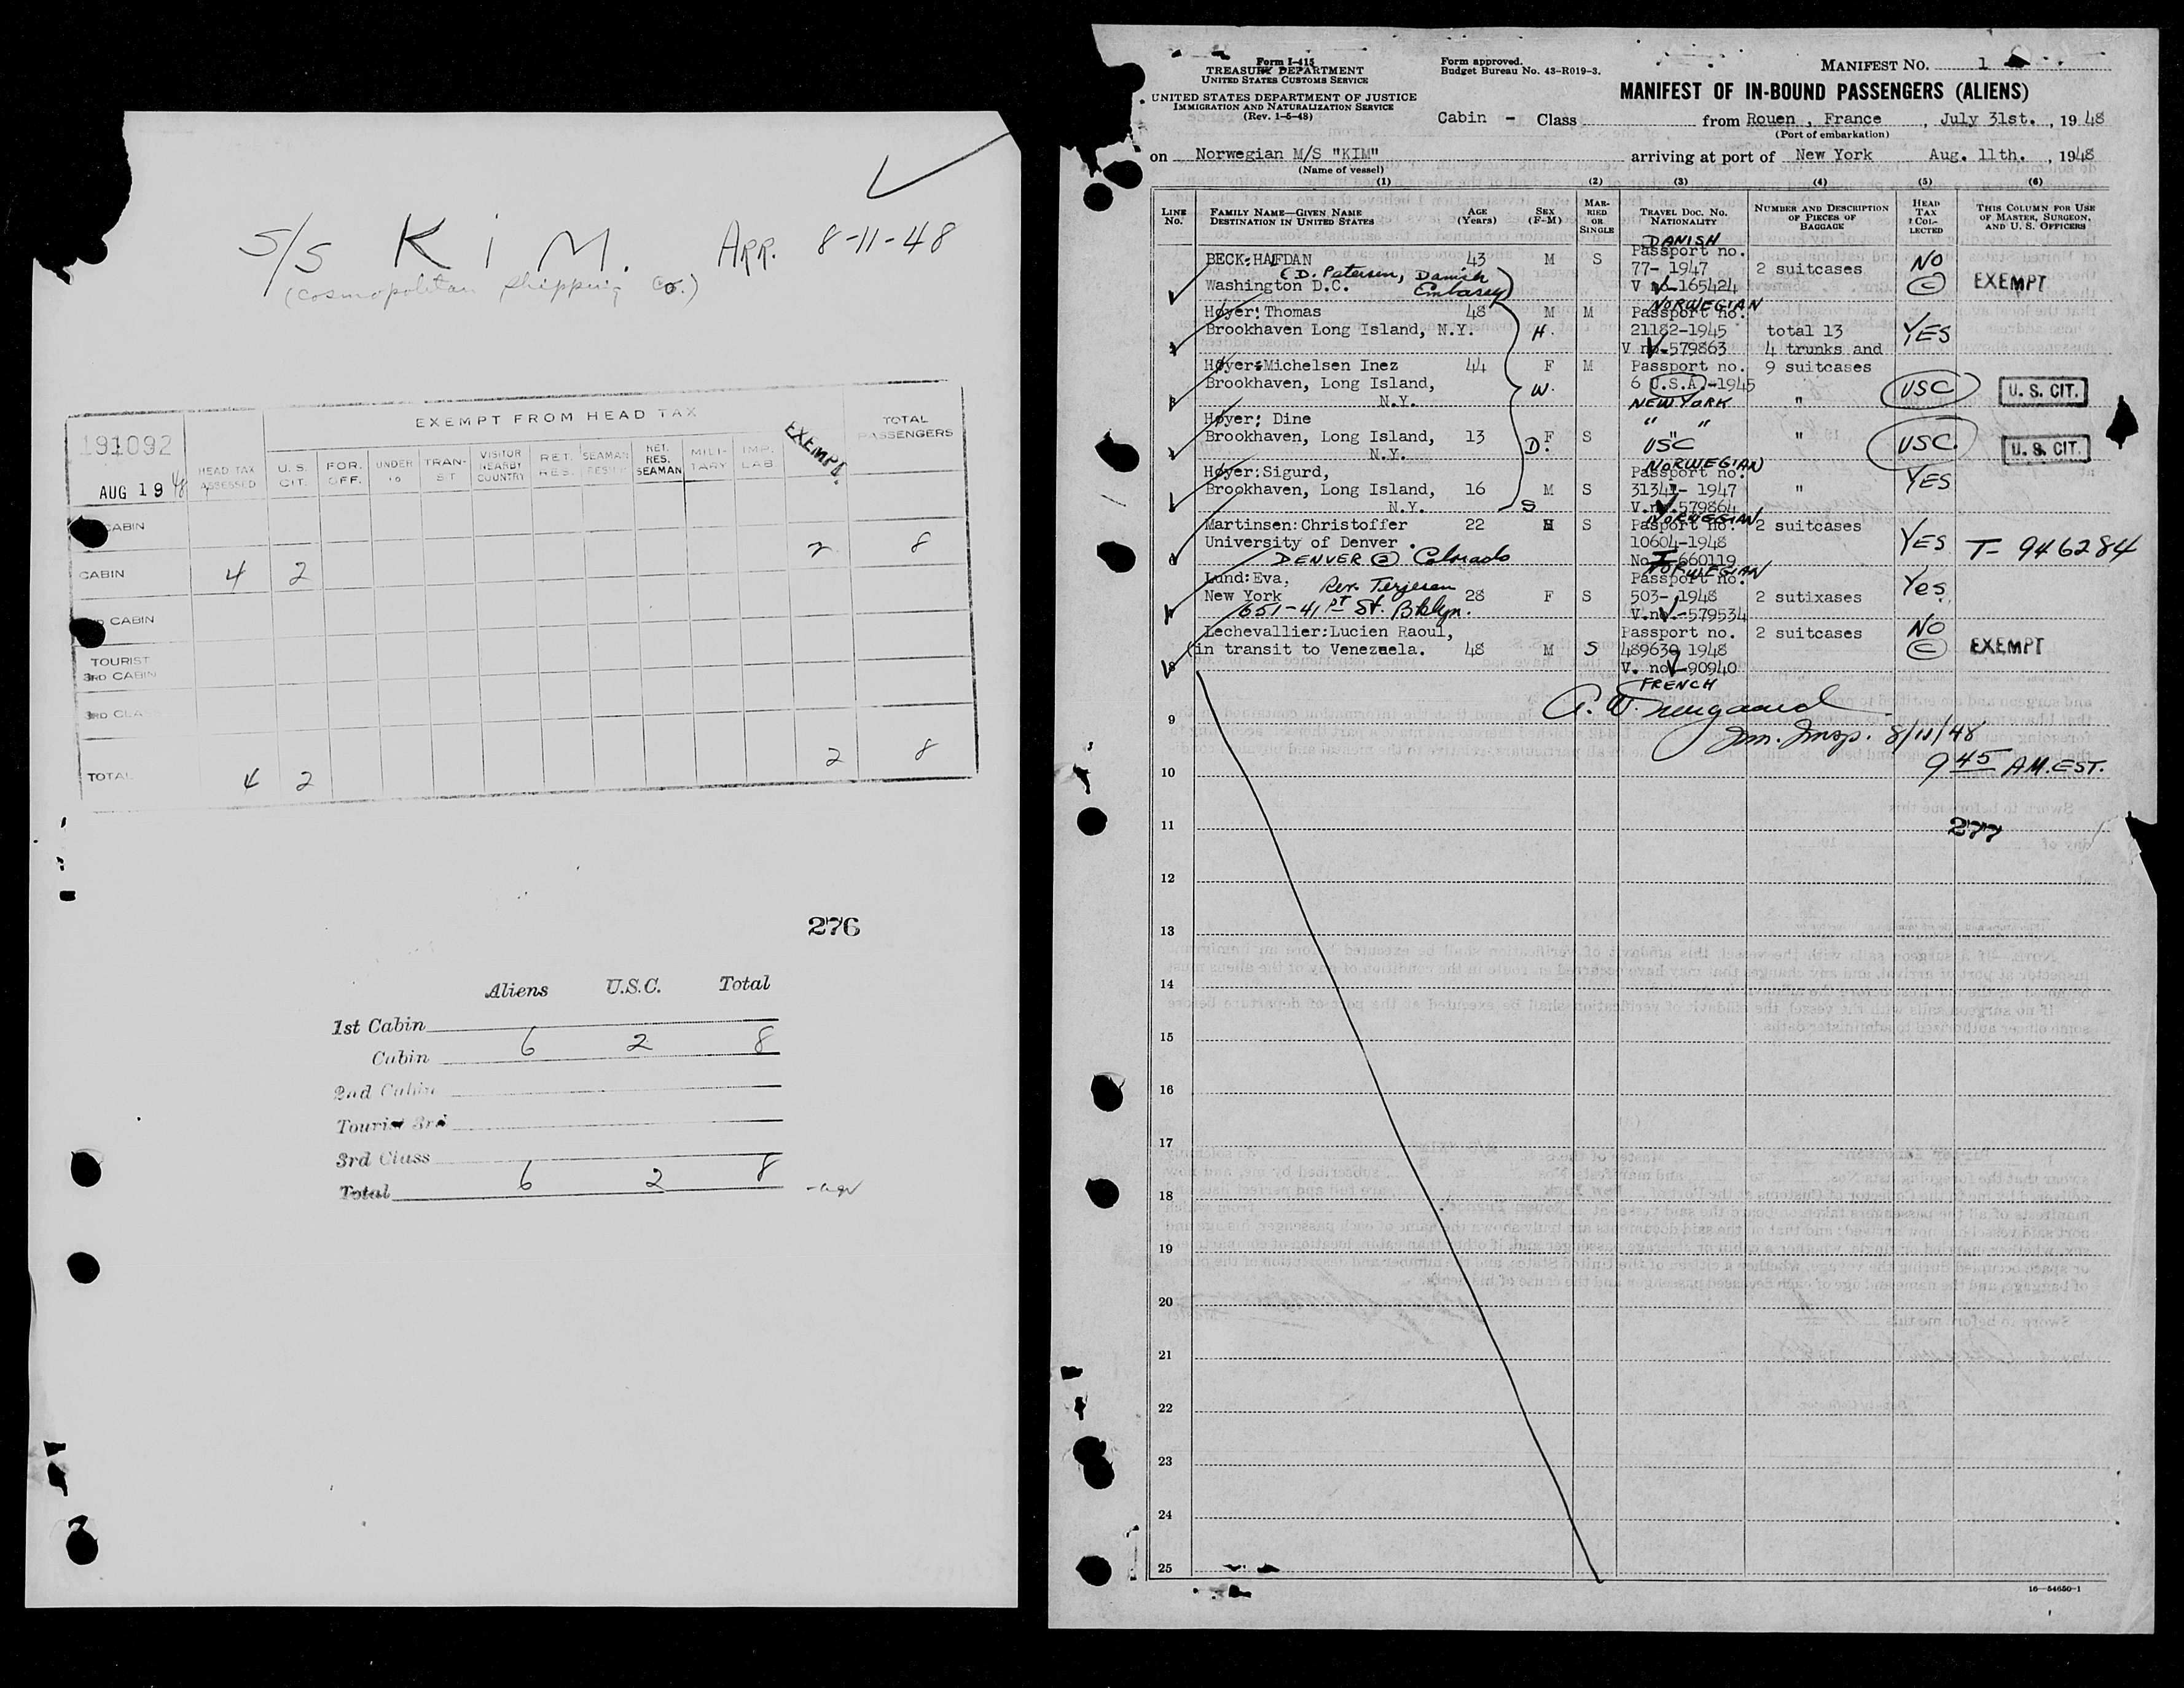 S/S KIM. ARR. 8-11-48
(Cosmopolitan Shipping Co.)
EXEMPT FROM HEAD TAX
191092
AUG 19 48
HEAD TAX ASSESSED
U. S. CIT.
FOR. OFF.
UNDER 16
TRAN- S T
VISITOR NEARBY COUNTRY
RET. RES.
SEAMAN
RET. RES. SEAMAN
MILI- TARY
IMP. LAB
EXEMPT.
TOTAL PASSENGERS
CABIN
CABIN 4 2 2 8
CABIN
TOURIST
3RD CABIN
3RD CLA
TOTAL 4 2 2 8
276
Aliens U.S.C. Total
1st Cabin
Cabin 6 2 8
2nd Cabin
Tourist 3rd
3rd Class
Total 6 2 8
Form I-415
TREASURY DEPARTMENT
UNITED STATES CUSTOMS SERVICE
UNITED STATES DEPARTMENT OF JUSTICE
IMMIGRATION AND NATURALIZATION SERVICE
(Rev. 1-5-48)
Form approved.
Budget Bureau No. 43-R019-3.
MANIFEST NO. 1
MANIFEST OF IN-BOUND PASSENGERS (ALIENS)
Cabin - Class from Rouen, France, July 31st., 1948
(Port of embarkation)
on Norwegian M/S "KIM" arriving at port of New York Aug. 11th., 1948
(Name of vessel)
(1) (2) (3) (4) (5) (6)
LINE NO.
FAMILY NAME—GIVEN NAME
DESTINATION IN UNITED STATES
AGE (YEARS)
SEX (F-M)
MARRIED OR SINGLE
TRAVEL DOC. NO. NATIONALITY
NUMBER AND DESCRIPTION OF PIECES OF BAGGAGE
HEAD TAX COLLECTED
THIS COLUMN FOR USE OF MASTER, SURGEON, AND U. S. OFFICERS
DANISH
BECK: HALFDAN 43 M S Passport no. NO
(D. Petersen, Danish 77- 1947 2 suitcases EXEMPT
Washington D.C. Embassy) V no-165424
NORWEGIAN
Høyer: Thomas 48 M M Passport no.
Brookhaven Long Island, N.Y. H. 21182-1945 total 13 YES
V no-579863 4 trunks and
Høyer: Michelsen Inez 44 F M Passport no. 9 suitcases
Brookhaven, Long Island, W. 6 U.S.A.-1945 USC U. S. CIT.
N.Y. NEW YORK "
Høyer; Dine " "
Brookhaven, Long Island, 13 D. F S " " USC. U. S. CIT.
N.Y. USC
NORWEGIAN
Høyer: Sigurd, Passport no. YES
Brookhaven, Long Island, 16 M S 31341- 1947 "
N.Y. S V.no.579864
NORWEGIAN
Martinsen: Christoffer 22 M S Passport no. 2 suitcases
University of Denver. 10604-1948 YES T- 946284
DENVER Colorado No I-660119
NORWEGIAN
Lund: Eva, Rev. Terjesen Passport no. Yes
New York 28 F S 503- 1948 2 sutixases
651-41st St. Bklyn. V.no.-579534
Lechevallier: Lucien Raoul, Passport no. 2 suitcases NO
(in transit to Venezuela. 48 M S 489630 1948 EXEMPT
8 V. no-90940
FRENCH
9
Imm. Insp. 8/11/48
10 9 45 A.M. EST.
11 277
12
13
14
15
16
17
18
19
20
21
22
23
24
25
16-54650-1